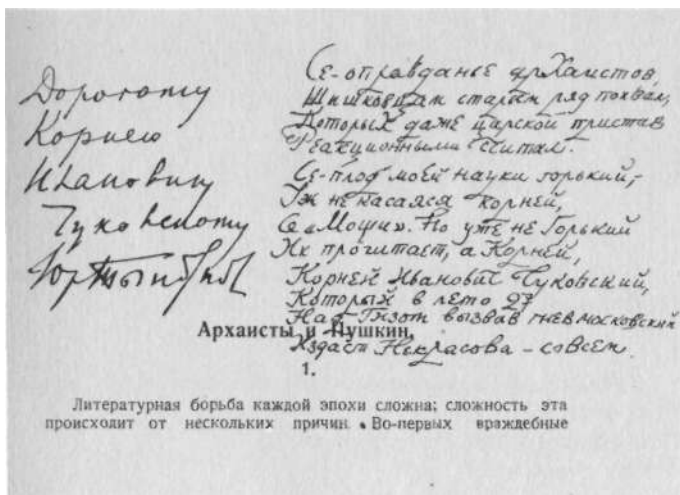 Дорогому
Корнею
Ивановичу
Чуковскому
Юр. Тынянов
Се-оправданье архаистов,
Шишковцам старым ряд похвал,
Которых даже царской пристав
Реакционными считал.
Се-плод моей науки горький,-
Уж не касаяся корней,
Се „Мощи“. Но уже не Горький
Их прочитает, а Корней,
Корней Иванович Чуковский,
Который в лето 27
Над вызвав гнев московский
Издаст Некрасова - совсем.
Архаисты и Пушкин.
1.
Литературная борьба каждой эпохи сложна; сложность эта
происходит от нескольких причин. Во-первых враждебные